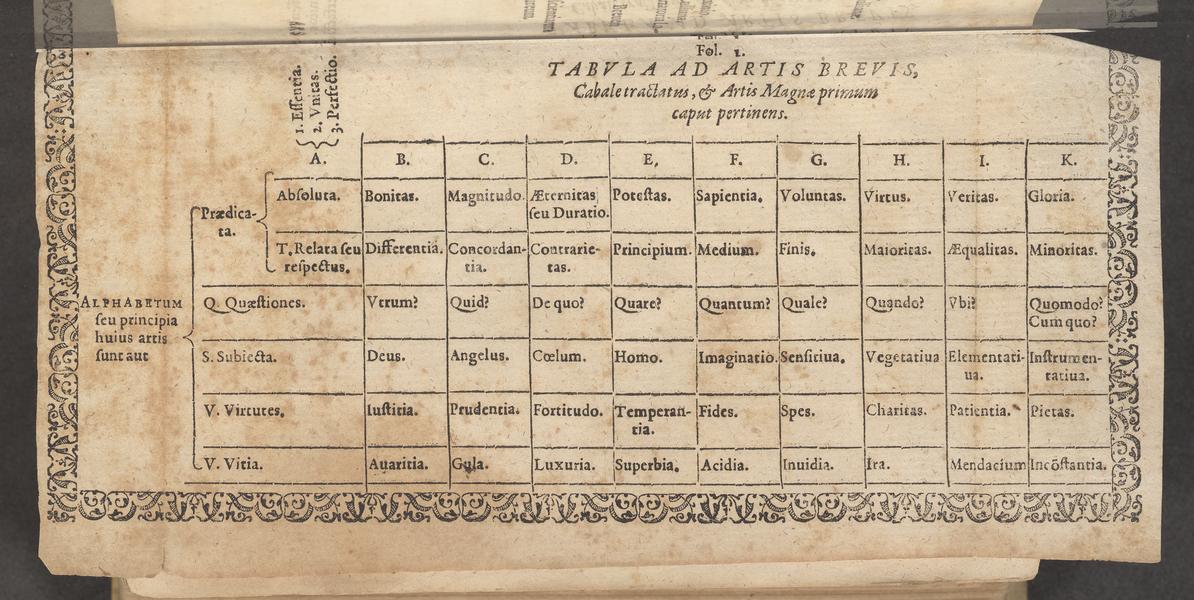 Fol. 1.
TABVLA AD ARTIS BREVIS,
Cabale tractatus, & Artis Magnæ primum
caput pertinens.
1. Essentia.
2. Vnitas.
3. Perfectio.
A. B. C. D. E. F. G. H. I. K.
ALPHABETUM
seu principia
huius artis
sunt aut
Prædica-
ta.
Absoluta. Bonitas. Magnitudo. Æternitas Potestas. Sapientia. Voluntas. Virtus. Veritas. Gloria.
seu Duratio.
T. Relata seu Differentia. Concordan- Contrarie- Principium. Medium. Finis. Maioritas. Æqualitas. Minoritas.
respectus. tia. tas.
Q. Quæstiones. Vtrum? Quid? De quo? Quare? Quantum? Quale? Quando? Vbi? Quomodo?
Cum quo?
S. Subiecta. Deus. Angelus. Cœlum. Homo. Imaginatio. Sensitiua. Vegetatiua Elementati- Instrumen-
ua. tatiua.
V. Virtutes. Iustitia. Prudentia. Fortitudo. Temperan- Fides. Spes. Charitas. Patientia. Pietas.
tia.
V. Vitia. Auaritia. Gula. Luxuria. Superbia. Acidia. Inuidia. Ira. Mendacium Incōstantia.